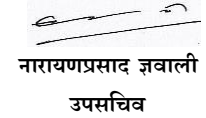 नारायणप्रसाद ज्ञवाली
उपसचिव